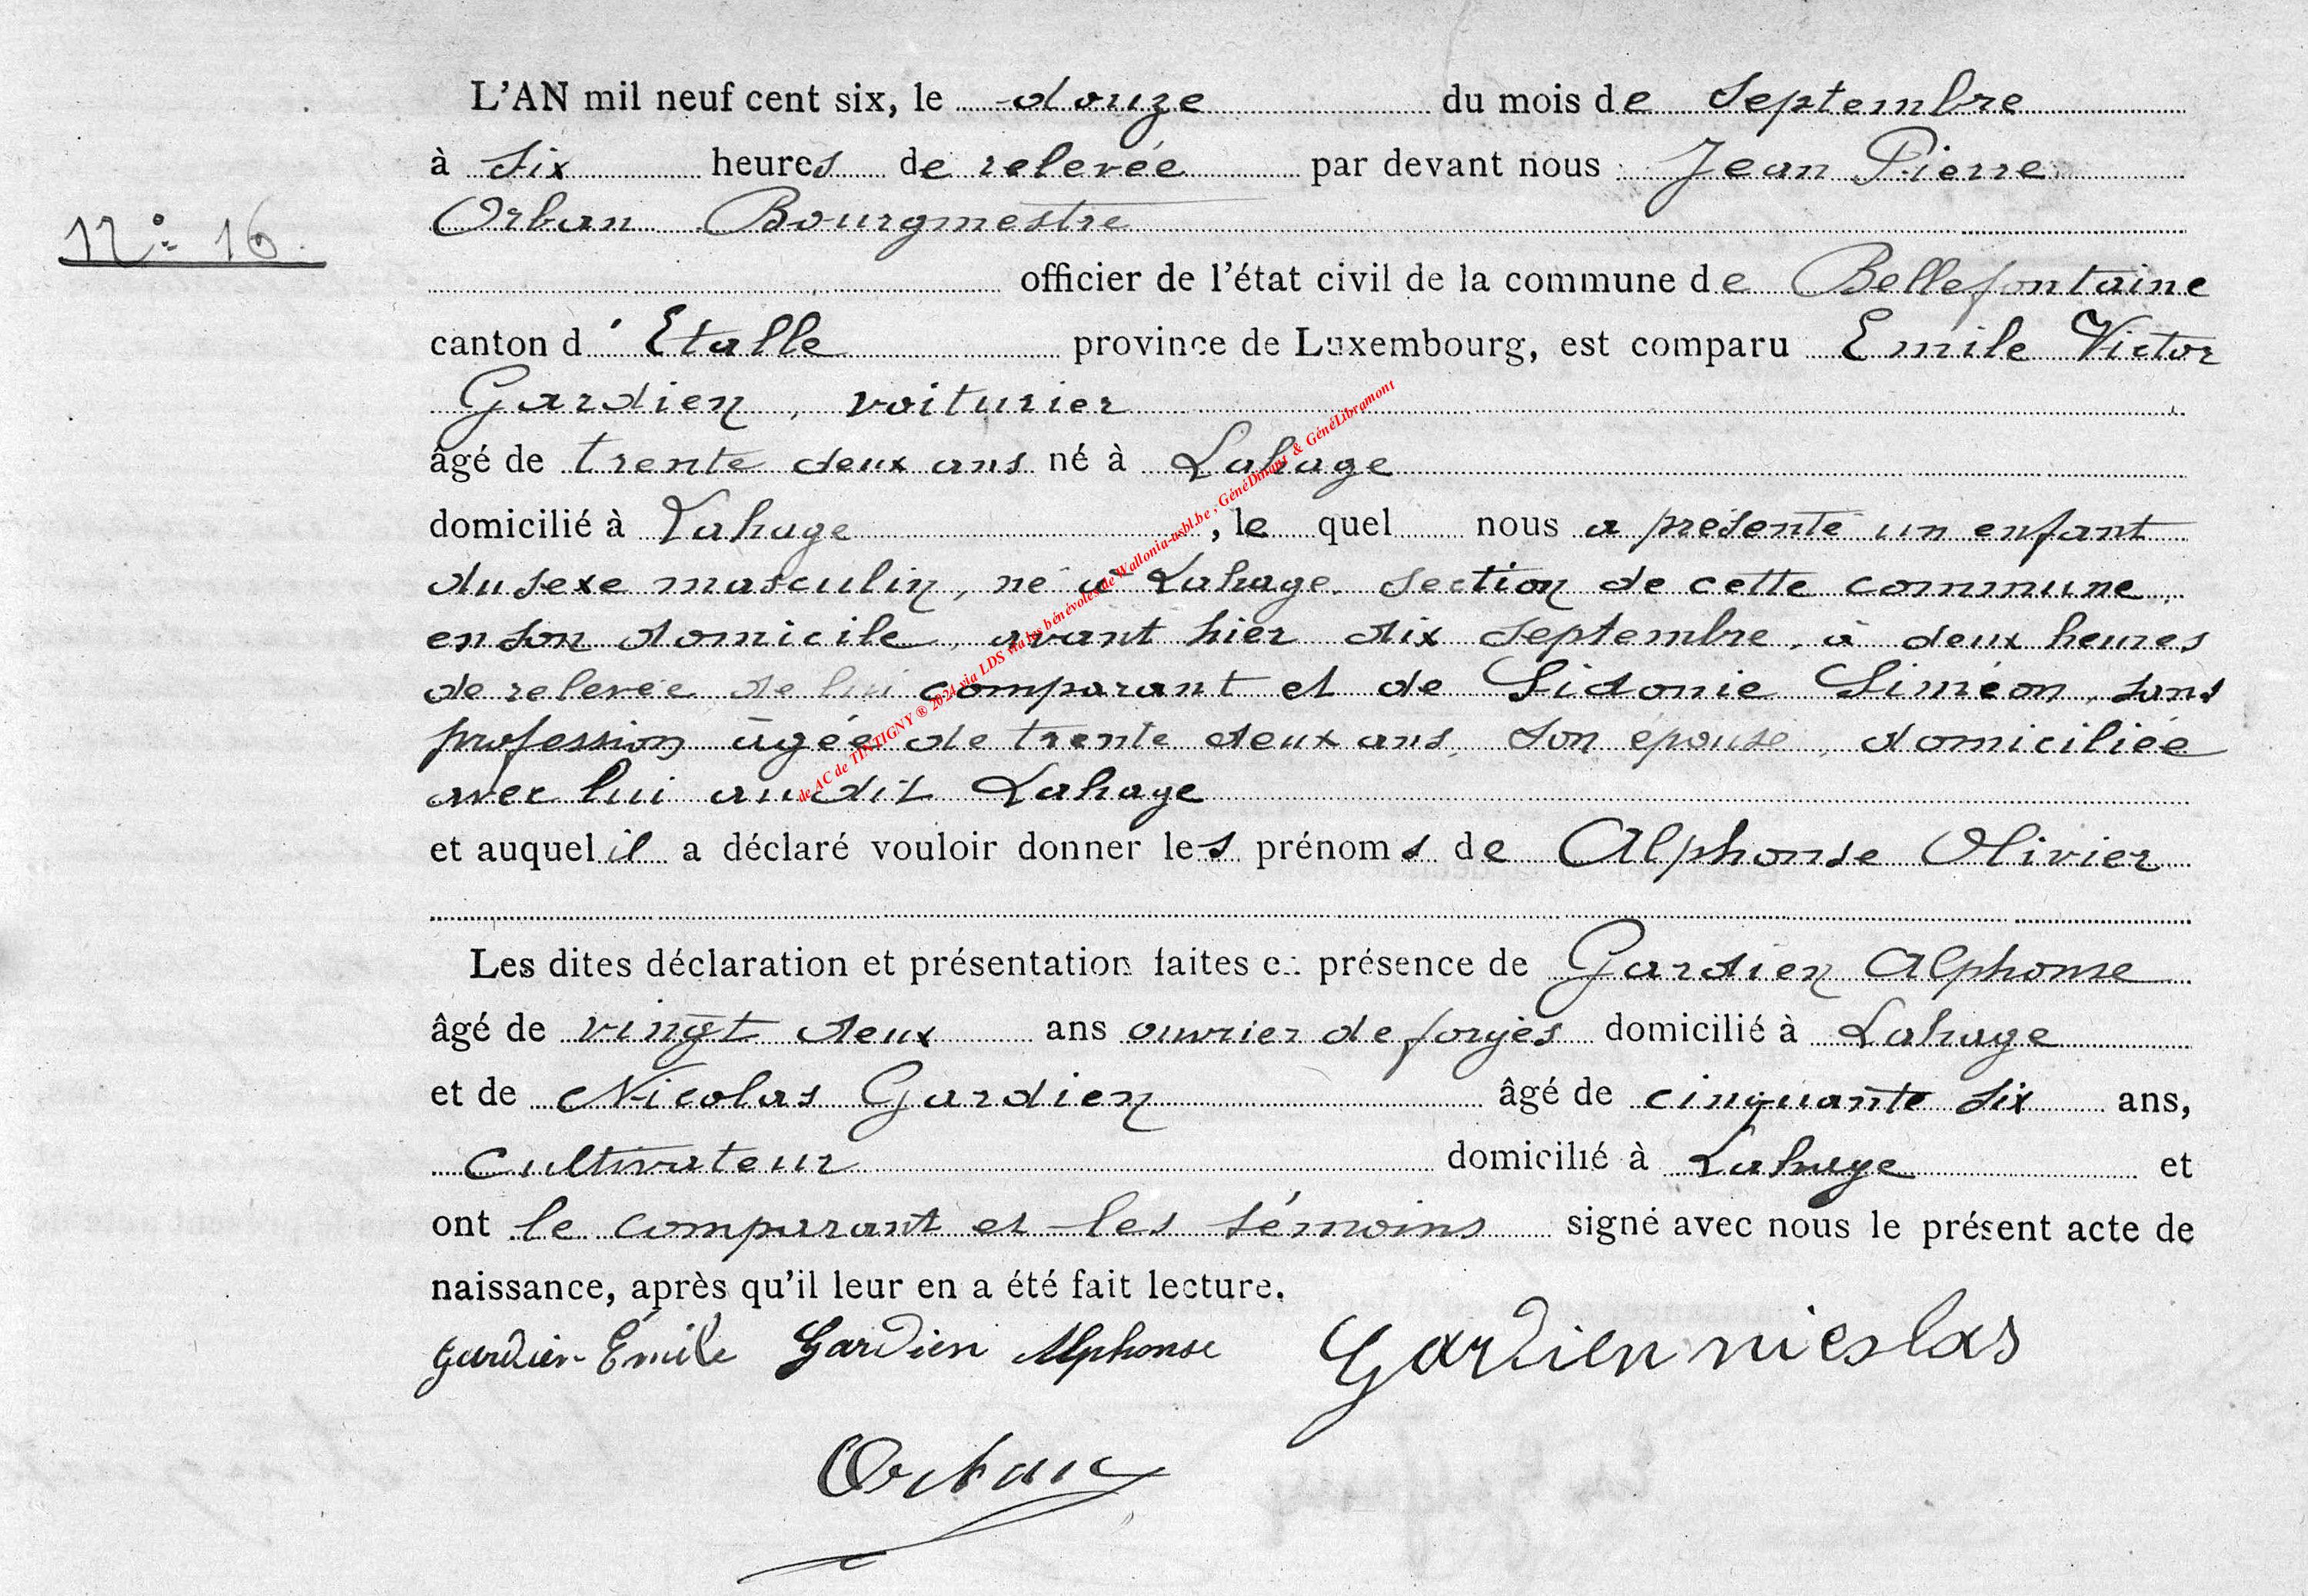 L'AN mil neuf cent six, le douze du mois de Septembre
à Six heures de relevée par devant nous Jean Pierre
Orban Bourgmestre
N° 16.
officier de l'état civil de la commune de Bellefontaine
canton d'Etalle province de Luxembourg, est comparu Emile Victor
Gardien, voiturier
âgé de trente deux ans né à Lahage
domicilié à Lahage, le quel nous a présenté un enfant
du sexe masculin, né à Lahage, section de cette commune,
en son domicile, avant hier dix Septembre, à deux heures
de relevée de lui comparant et de Sidonie Siméon, sans
profession âgée de trente deux ans, son épouse, domiciliée
avec lui audit Lahage
et auquel il a déclaré vouloir donner les prénoms de Alphonse Olivier
Les dites déclaration et présentation faites en présence de Gardien Alphonse
âgé de vingt deux ans ouvrier de forges domicilié à Lahage
et de Nicolas Gardien âgé de cinquante six ans,
cultivateur domicilié à Lahage et
ont le comparant et les témoins signé avec nous le présent acte de
naissance, après qu'il leur en a été fait lecture.
Gardien Émile Gardien Alphonse Gardien nicolas
Orban
de AC de TINTIGNY ® 2024 via LDS via les bénévoles de Wallonia-asbl.be, GénéDinant & GénéLibramont